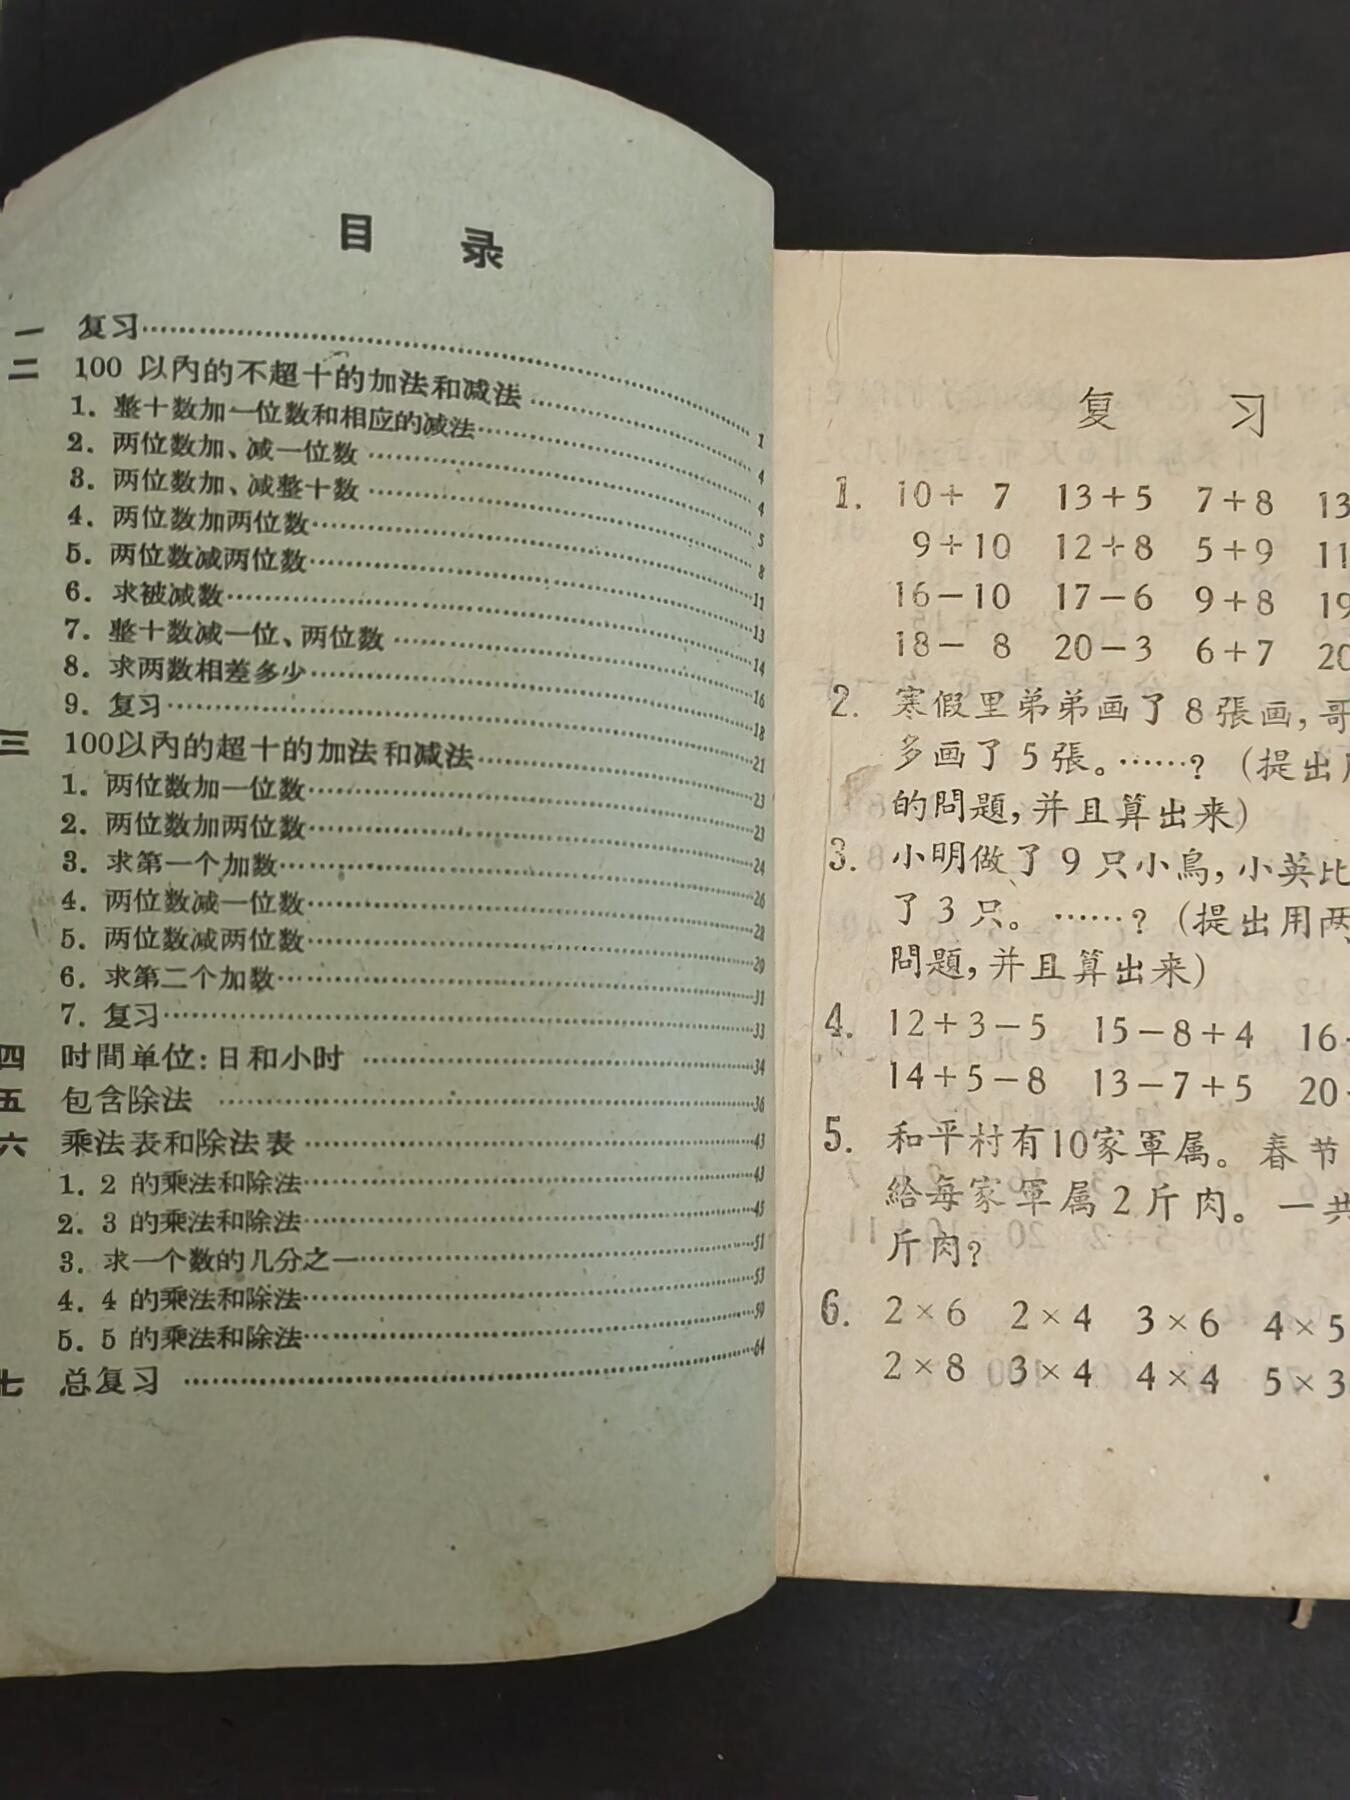 目 录
一 复习……1
二 100 以內的不超十的加法和减法……4
1. 整十数加一位数和相应的减法……4
2. 两位数加、减一位数……5
3. 两位数加、减整十数……8
4. 两位数加两位数……11
5. 两位数减两位数……13
6. 求被减数……14
7. 整十数减一位、两位数……16
8. 求两数相差多少……18
9. 复习……21
三 100以內的超十的加法和减法……23
1. 两位数加一位数……23
2. 两位数加两位数……24
3. 求第一个加数……26
4. 两位数减一位数……28
5. 两位数减两位数……29
6. 求第二个加数……31
7. 复习……33
四 时間单位:日和小时……34
五 包含除法……36
六 乘法表和除法表……43
1. 2 的乘法和除法……43
2. 3 的乘法和除法……45
3. 求一个数的几分之一……51
4. 4 的乘法和除法……53
5. 5 的乘法和除法……59
七 总复习……64
复 习
1. 10+ 7 13+5 7+8 13
9+10 12+8 5+9 11
16-10 17-6 9+8 19
18- 8 20-3 6+7 20
2. 寒假里弟弟画了 8 張画,哥
多画了 5 張。……? (提出用
的問題,并且算出来)
3. 小明做了 9 只小鳥,小英比
了 3 只。……? (提出用两
問題,并且算出来)
4. 12+3-5 15-8+4 16-
14+5-8 13-7+5 20-
5. 和平村有10家軍属。春节
給每家軍属 2 斤肉。一共
斤肉?
6. 2×6 2×4 3×6 4×5
2×8 3×4 4×4 5×3